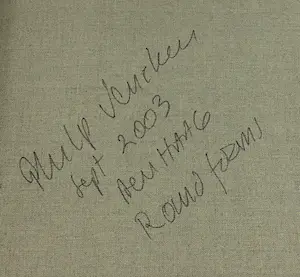 Philip Vencken
Sept 2003
Den HAAG
Round forms